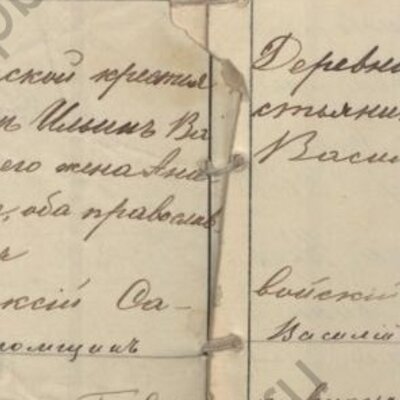 ской крестья
нъ Ильинъ Ва
его жена Анн
оба православ
ксій Са-
омщикъ
Деревни
стьянин
Васил
войскій
Василій